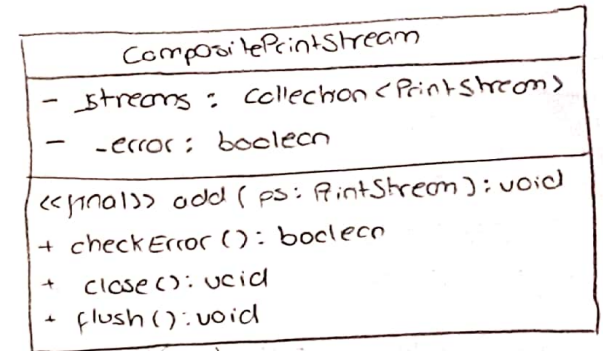 CompositePrintStream
- _streams : Collection<PrintStream>
- _error : boolean
<<final>> add ( ps : PrintStream ) : void
+ checkError () : boolean
+ close () : void
+ flush () : void